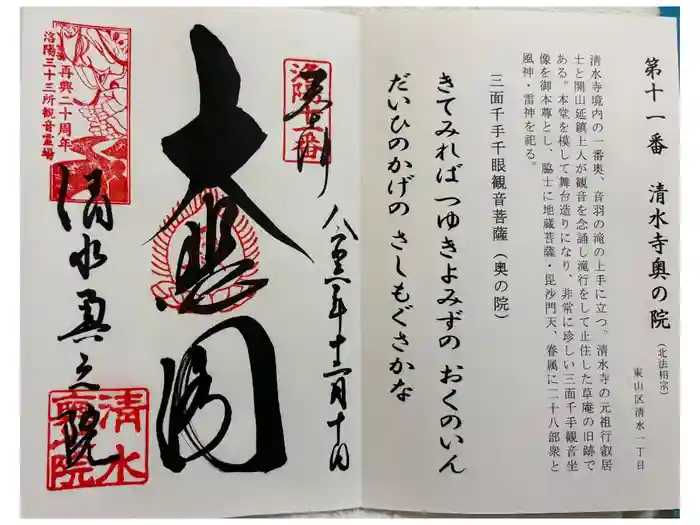 第十一番 清水寺奥の院
(北法相宗)
東山区清水一丁目
清水寺境内の一番奥、音羽の滝の上手に立つ。清水寺の元祖行叡居
士と開山延鎮上人が観音を念誦し滝行をして止住した草庵の旧跡で
ある。本堂を模して舞台造りになり、非常に珍しい三面千手観音坐
像を御本尊とし、脇士に地蔵菩薩・毘沙門天、眷属に二十八部衆と
風神・雷神を祀る。
三面千手千眼観音菩薩(奥の院)
きてみれば つゆきよみずの おくのいん
だいひのかげの さしもぐさかな
洛陽十一番
奉拝
大悲閣
再興二十周年
洛陽三十三所観音霊場
清水奥之院
清水
奥之院